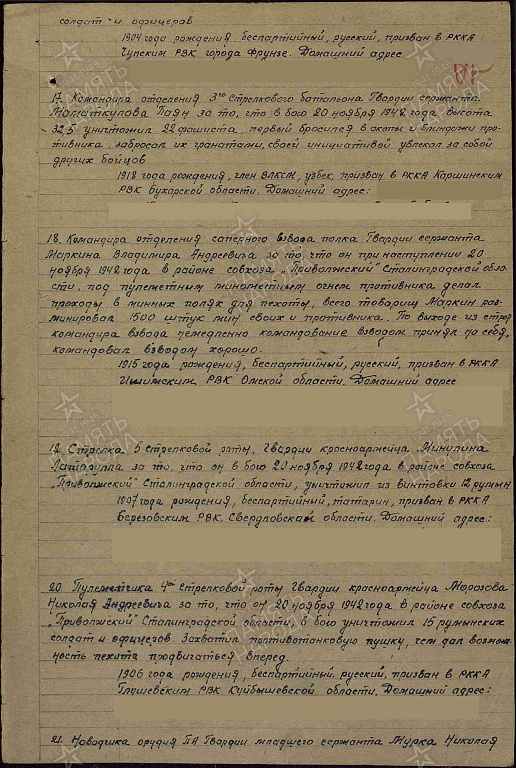 солдат и офицеров
1904 года рождения, беспартийный, русский, призван в РККА
Чупским РВК города Фрунзе. Домашний адрес
17. Командира отделения 3го стрелкового батальона Гвардии сержанта
Маматкулова Паян за то, что в бою 20 ноября 1942 года высота
32,5 уничтожил 22 фашиста, первый бросился в окопы и блиндажи про-
тивника, забросал их гранатами, своей инициативой увлекал за собой
других бойцов
1918 года рождения, член ВЛКСМ, узбек, призван в РККА Каршинским
РВК Бухарской области. Домашний адрес:
18. Командира отделения саперного взвода полка Гвардии сержанта
Маркина Владимира Андреевича за то, что он при наступлении 20
ноября 1942 года в районе совхоза „Приволжский" Сталинградской обла-
сти, под пулеметным минометным огнем противника делал
проходы в минных полях для пехоты, всего товарищ Маркин раз-
минировал 1500 штук мин своих и противника. По выходе из строя
командира взвода немедленно командование взводом принял на себя,
командовал взводом хорошо.
1915 года рождения, беспартийный, русский, призван в РККА
Ишимским РВК Омской области. Домашний адрес
19. Стрелка 5 стрелковой роты, Гвардии красноармейца Минулина
за то, что он в бою 20 ноября 1942 года в районе совхоза
„Приволжский" Сталинградской области, уничтожил из винтовки 12 румын
1907 года рождения, беспартийный, татарин, призван в РККА
Березовским РВК, Свердловской области. Домашний адрес:
20. Пулеметчика 4ой стрелковой роты Гвардии красноармейца Морозова
Николая Андреевича за то, что он 20 ноября 1942 года в районе совхоза
„Приволжский" Сталинградской области, в бою уничтожил 15 румынских
солдат и офицеров захватил противотанковую пушку, чем дал возмож-
ность пехоте продвигаться вперед.
1906 года рождения, беспартийный, русский, призван в РККА
РВК Куйбышевской области. Домашний адрес:
21. Наводчика орудия ПА Гвардии младшего сержанта Мурка Николая